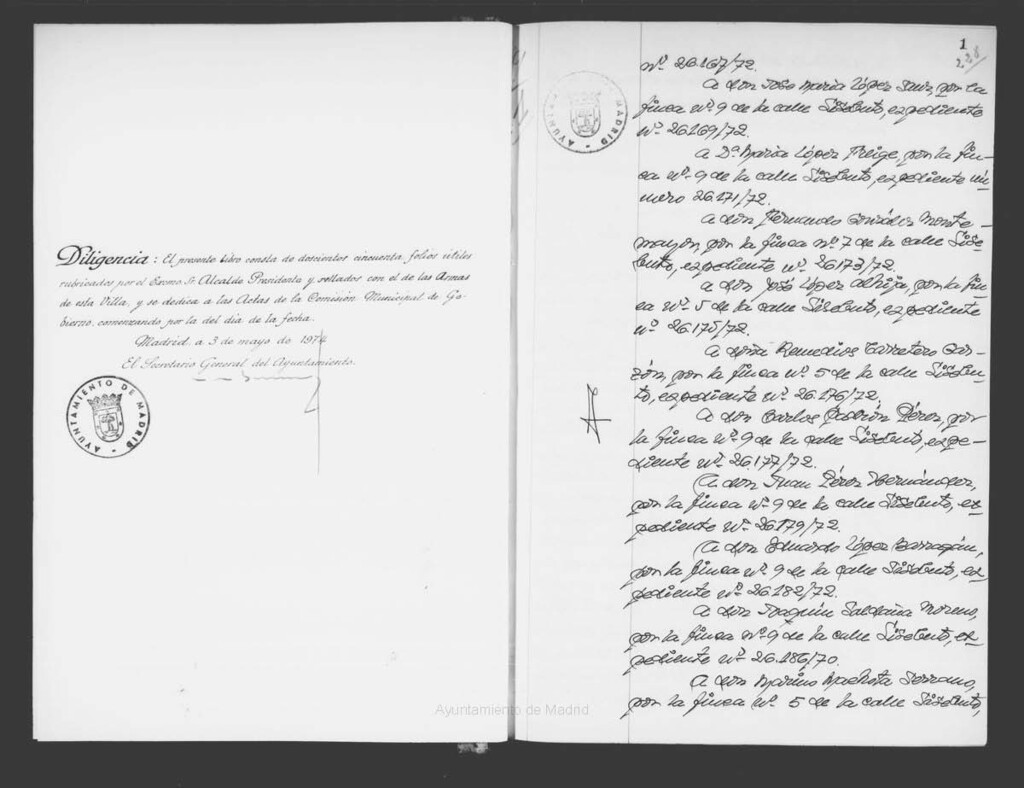 Diligencia: El presente libro consta de doscientos cincuenta folios útiles
rubricados por el Excmo. Sr. Alcalde Presidente y sellados con el de las Armas
de esta Villa, y se dedica a las Actas de la Comisión Municipal de Go-
bierno, comenzando por la del día de la fecha.
Madrid, a 3 de mayo de 1974
El Secretario General del Ayuntamiento.
AYUNTAMIENTO DE MADRID
1
228
AYUNTAMIENTO DE MADRID
nº 26.167/72.
A don José María López Sanz, por la
finca nº 9 de la calle Sisebuto, expediente
nº 26169/72.
A Dª María López Freige, por la fin-
ca nº 9 de la calle Sisebuto, expediente nú-
mero 26.171/72.
A don Fernando González Monte-
mayor, por la finca nº 7 de la calle Sise-
buto, expediente nº 26173/72.
A don José López, por la fin-
ca nº 5 de la calle Sisebuto, expediente
nº 26.175/72.
A doña Remedios Carretero Gar-
zón, por la finca nº 5 de la calle Sisebu-
to, expediente nº 26.176/72.
A don Carlos Padrón Pérez, por
la finca nº 9 de la calle Sisebuto, expe-
diente nº 26.177/72.
A don Juan Pérez Hernández,
por la finca nº 9 de la calle Sisebuto, ex-
pediente nº 26179/72.
A don Eduardo López Barragán,
por la finca nº 9 de la calle Sisebuto, ex-
pediente nº 26.182/72.
A don Joaquín Saldaña Moreno,
por la finca nº 9 de la calle Sisebuto, ex-
pediente nº 26.186/70.
A don Marino Machota Serrano,
por la finca nº 5 de la calle Sisebuto,
Ayuntamiento de Madrid